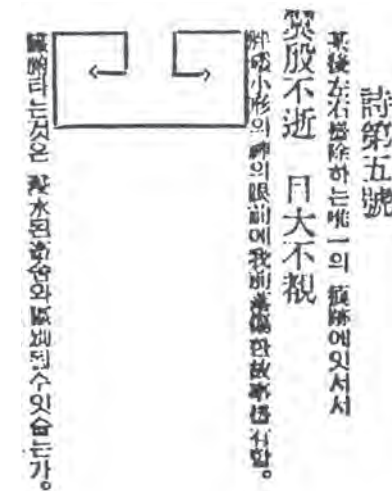 詩第五號
某後左右를除하는唯一의 痕跡에잇서서
翼殷不逝 目大不覩
胖矮小形의神의眼前에我前落傷한故事를有함。
臟腑타는것은 浸水된畜舍와區別될수잇슬는가。